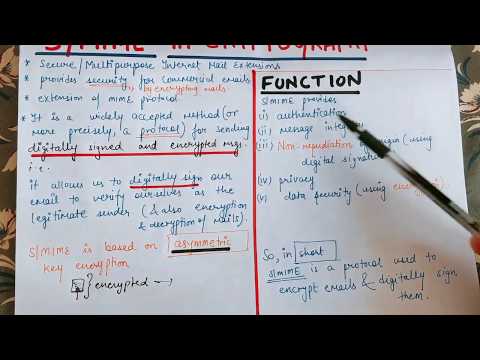 S/MIME IN CRYPTOGRAPHY
* Secure/Multipurpose Internet Mail Extensions
* provides security for commercial emails
by encrypting mails.
* extension of MIME protocol
* It is a widely accepted method (or
more precisely, a protocol) for sending
digitally signed and encrypted msgs.
i.e.
it allows us to digitally sign our
email to verify ourselves as the
legitimate sender (& also encryption
& decryption of mails).
S/MIME is based on asymmetric
key encryption
encrypted
FUNCTION
S/MIME provides
i) authentication
(ii) message
(iii) Non-repudiation of origin (using
digital
(iv) privacy
(v) data security (using
So, in short
S/MIME is a protocol used to
encrypt emails & digitally sign
them.